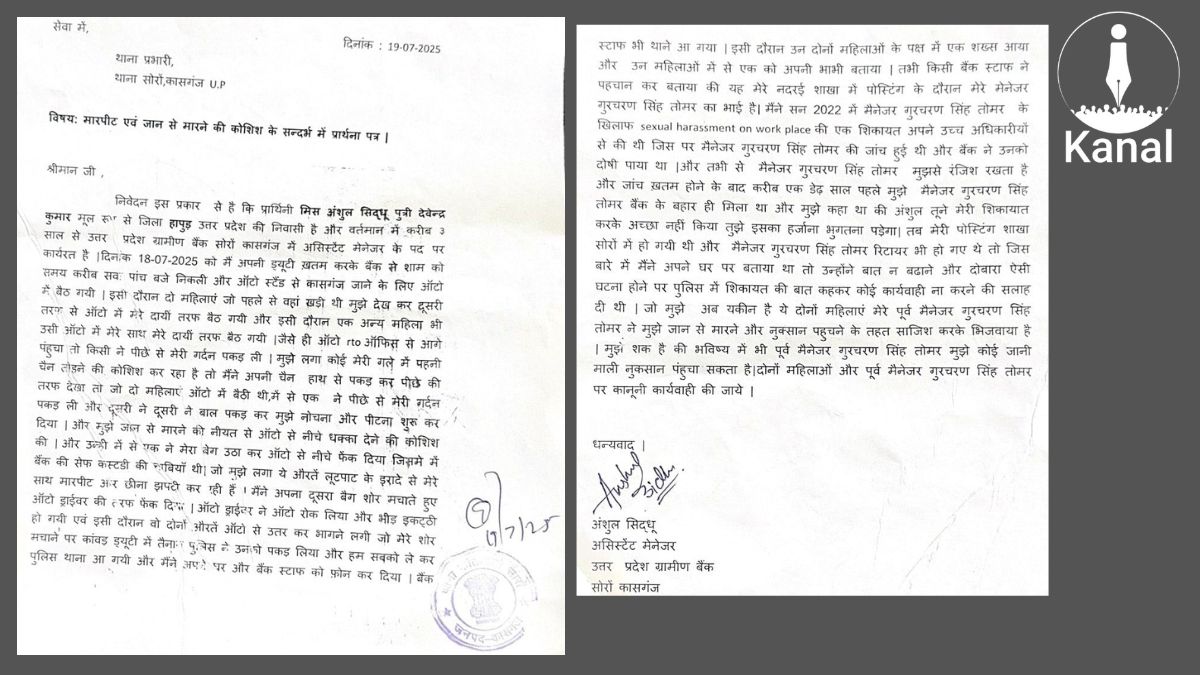 सेवा में,
दिनांक : 19-07-2025
थाना प्रभारी,
थाना सोरों,कासगंज U.P
विषय: मारपीट एवं जान से मारने की कोशिश के सन्दर्भ में प्रार्थना पत्र |
श्रीमान जी ,
निवेदन इस प्रकार से है कि प्रार्थिनी मिस अंशुल सिद्धू पुत्री देवेन्द्र
कुमार मूल रूप से जिला हापुड़ उत्तर प्रदेश की निवासी है और वर्तमान में करीब 3
साल से उत्तर प्रदेश ग्रामीण बैंक सोरों कासगंज में असिस्टेंट मेनेजर के पद पर
कार्यरत है |दिनांक 18-07-2025 को मैं अपनी ड्यूटी ख़तम करके बैंक से शाम को
समय करीब सवा पांच बजे निकली और ऑटो स्टैंड से कासगंज जाने के लिए ऑटो
में बैठ गयी | इसी दौरान दो महिलाएं जो पहले से वहां खड़ी थी मुझे देख कर दूसरी
तरफ से ऑटो में मेरे दायीं तरफ बैठ गयी और इसी दौरान एक अन्य महिला भी
उसी ऑटो में मेरे साथ मेरे दायीं तरफ बैठ गयी |जैसे ही ऑटो rto ऑफिस से आगे
पंहुचा तो किसी ने पीछे से मेरी गर्दन पकड़ ली | मुझे लगा कोई मेरी गले में पहनी
चैन तोड़ने की कोशिश कर रहा है तो मैंने अपनी चैन हाथ से पकड़ कर पीछे की
तरफ देखा तो जो दो महिलाएं ऑटो में बैठी थी,में से एक ने पीछे से मेरी गर्दन
पकड़ ली और दूसरी ने दूसरी ने बाल पकड़ कर मुझे नोचना और पीटना शुरू कर
दिया | और मुझे जान से मारने की नीयत से ऑटो से नीचे धक्का देने की कोशिश
की | और उन्ही में से एक ने मेरा बेग उठा कर ऑटो से नीचे फेंक दिया जिसमे में
बैंक की सेफ कस्टडी की चाबियाँ थी| जो मुझे लगा ये औरतें लूटपाट के इरादे से मेरे
साथ मारपीट और छीना झपटी कर रही हैं | मैंने अपना दूसरा बैग शोर मचाते हुए
ऑटो ड्राईवर की तरफ फेंक दिया | ऑटो ड्राईवर ने ऑटो रोक लिया और भीड़ इकट्ठी
हो गयी एवं इसी दौरान वो दोनों औरतें ऑटो से उतर कर भागने लगी जो मेरे शोर
मचाने पर कांवड़ ड्यूटी में तैनात पुलिस ने उनको पकड़ लिया और हम सबको ले कर
पुलिस थाना आ गयी और मैंने अपने घर और बैंक स्टाफ को फ़ोन कर दिया | बैंक
जनपद-कासगंज
स्टाफ भी थाने आ गया | इसी दौरान उन दोनों महिलाओं के पक्ष में एक शख्स आया
और उन महिलाओं में से एक को अपनी भाभी बताया | तभी किसी बैंक स्टाफ ने
पहचान कर बताया की यह मेरे नदरई शाखा में पोस्टिंग के दौरान मेरे मेनेजर
गुरचरण सिंह तोमर का भाई है| मैंने सन 2022 में मैनेजर गुरचरण सिंह तोमर के
खिलाफ sexual harassment on work place की एक शिकायत अपने उच्च अधिकारीयों
से की थी जिस पर मैनेजर गुरचरण सिंह तोमर की जांच हुई थी और बैंक ने उनको
दोषी पाया था |और तभी से मैनेजर गुरचरण सिंह तोमर मुझसे रंजिश रखता है
और जांच ख़तम होने के बाद करीब एक डेढ़ साल पहले मुझे मैनेजर गुरचरण सिंह
तोमर बैंक के बहार ही मिला था और मुझे कहा था की अंशुल तूने मेरी शिकायात
करके अच्छा नहीं किया तुझे इसका हर्जाना भुगतना पड़ेगा| तब मेरी पोस्टिंग शाखा
सोरों में हो गयी थी और मैनेजर गुरचरण सिंह तोमर रिटायर भी हो गए थे तो जिस
बारे में मैंने अपने घर पर बताया था तो उन्होंने बात न बढाने और दोबारा ऐसी
घटना होने पर पुलिस में शिकायत की बात कहकर कोई कार्यवाही ना करने की सलाह
दी थी | जो मुझे अब यकीन है ये दोनों महिलाएं मेरे पूर्व मैनेजर गुरचरण सिंह
तोमर ने मुझे जान से मारने और नुक्सान पहुचने के तहत साजिश करके भिजवाया है
| मुझे शक है की भविष्य में भी पूर्व मैनेजर गुरचरण सिंह तोमर मुझे कोई जानी
माली नुकसान पंहुचा सकता है|दोनों महिलाओं और पूर्व मैनेजर गुरचरण सिंह तोमर
पर कानूनी कार्यवाही की जाये |
धन्यवाद |
Anshul
Sidhu
अंशुल सिद्धू
असिस्टेंट मेनेजर
उत्तर प्रदेश ग्रामीण बैंक
सोरों कासगंज
Kanal